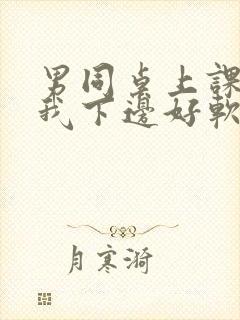 男同桌上課
我下邊好軟
月寒漪